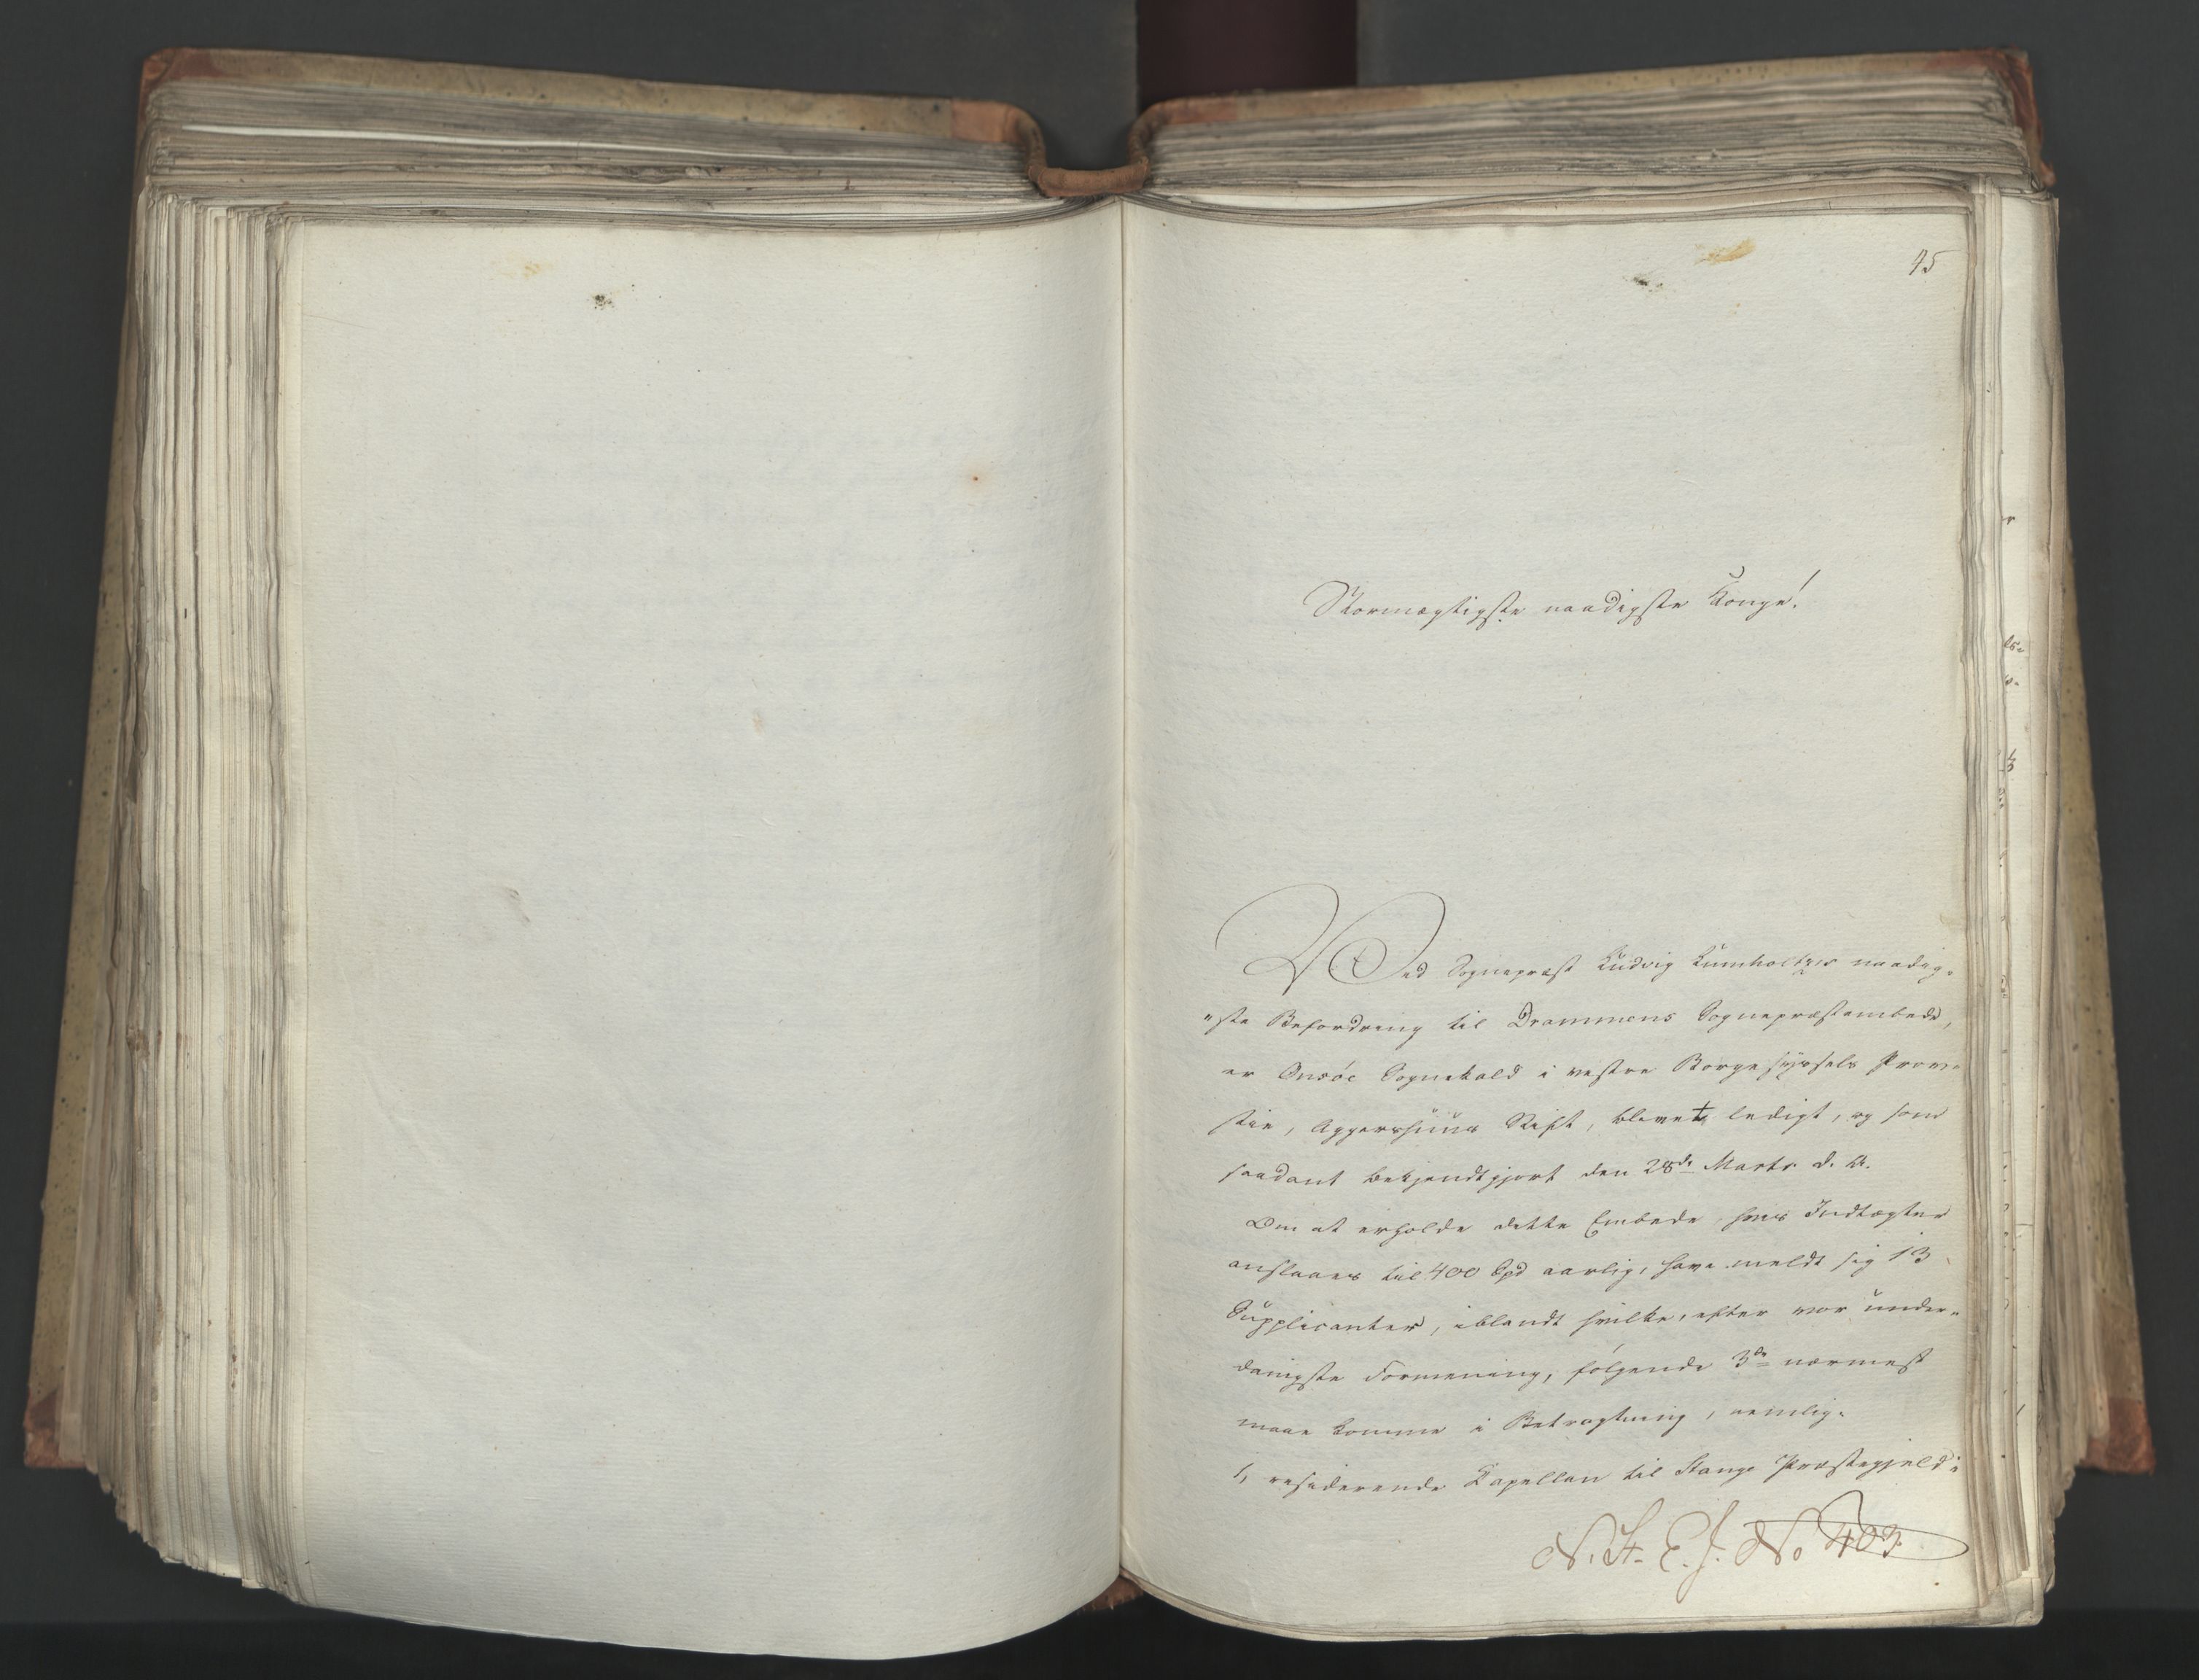 45
Stormægtigste naadigste Konge!
Ved Sognepræst Ludvig Lumholtzes naadig-
"ste Befordring til Drammens Sognepræstembede,
er Onsöe Sognekald i vestre Borgesyssels Prov-
stie, Aggershuus Stift, blevet ledigt, og som
saadant bekjendtgjort den 28de Marts d. A.
Om at erholde dette Embede hvis Indtægter
anslaaes til 400 Spd aarlig, have meldt sig 13
Supplicanter, iblandt hvilke, efter vor under-
danigste Formening, følgende 3de nærmest
maae komme i Betragtning, nemlig:
1, residerende Kapellan til Stange Præstegjeld i
N. St. E. J. No 403